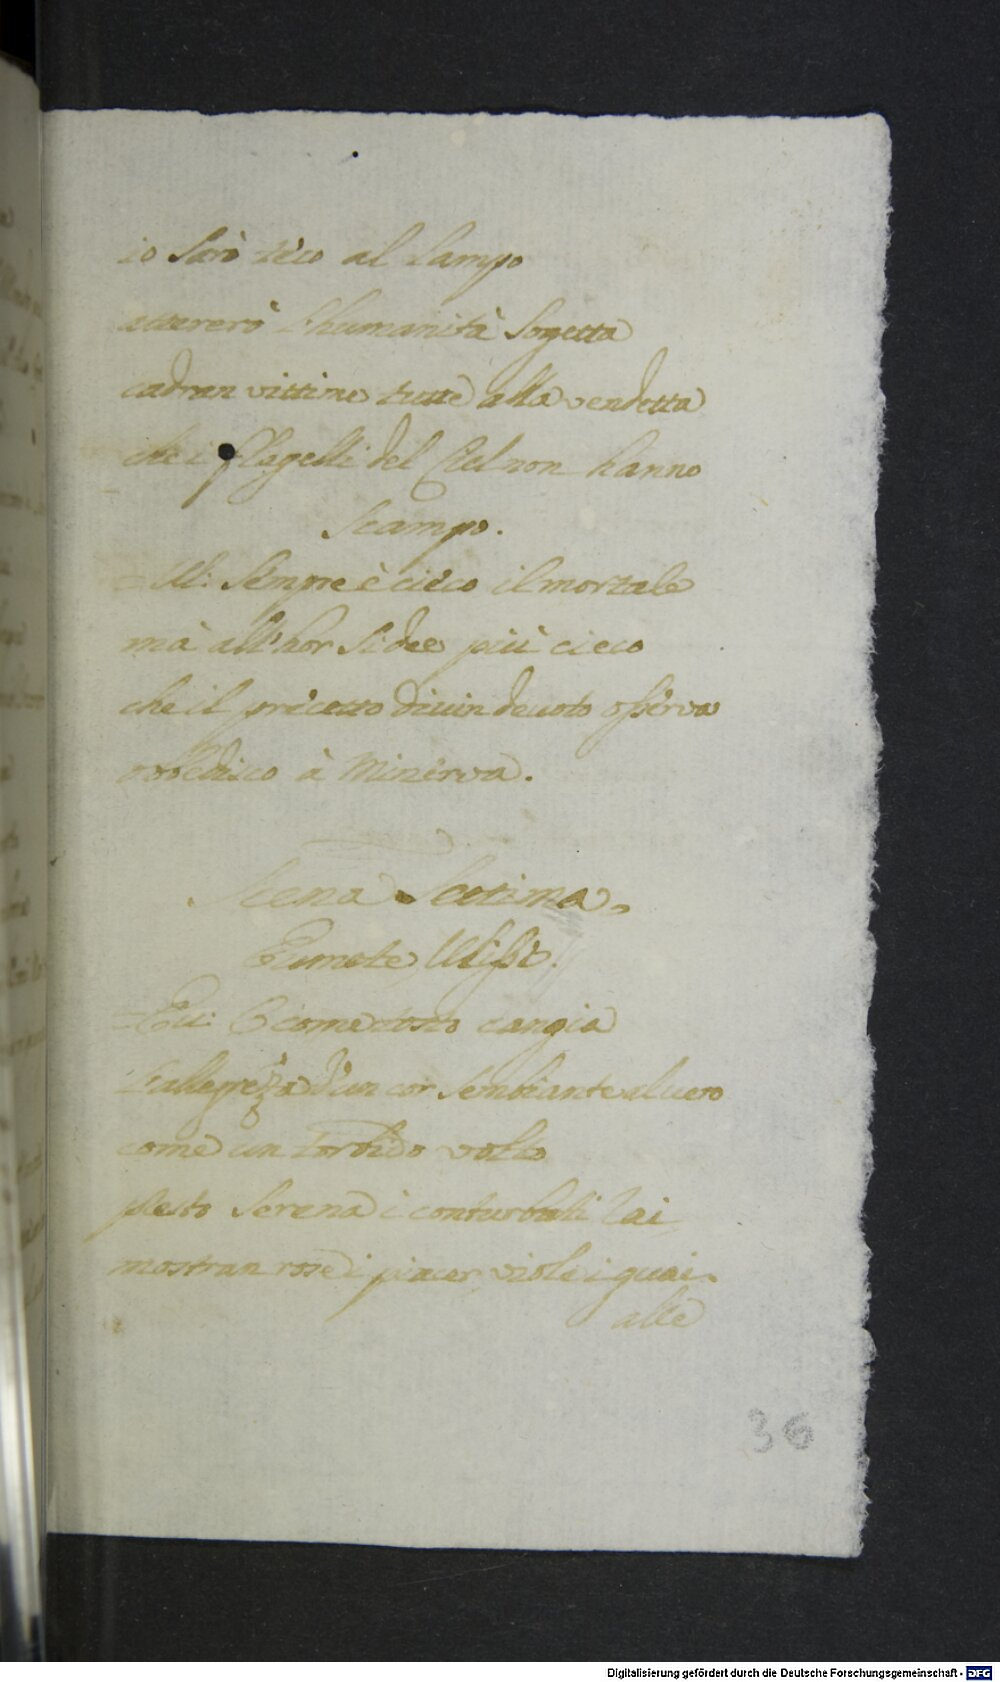 io sarò teco al Lampo
attererò l'humanità sogetta
cadran vittime tutte alla vendetta
che i flagelli del Ciel non hanno
scampo.
=Ul: Sempre è cieco il mortale
mà all'hor si dee più cieco
che il precetto divin devoto osserva
obbedisco à Minerva.
Scena Settima.
Eumete, Ulisse.
=Eu: O come tosto cangia
l'allegrezza d'un cor sembiante al vero
come un torbido volto
presto serena i conturbati rai
mostran rose i piacer, viole i guai.
alle
36
Digitalisierung gefördert durch die Deutsche Forschungsgemeinschaft - DFG